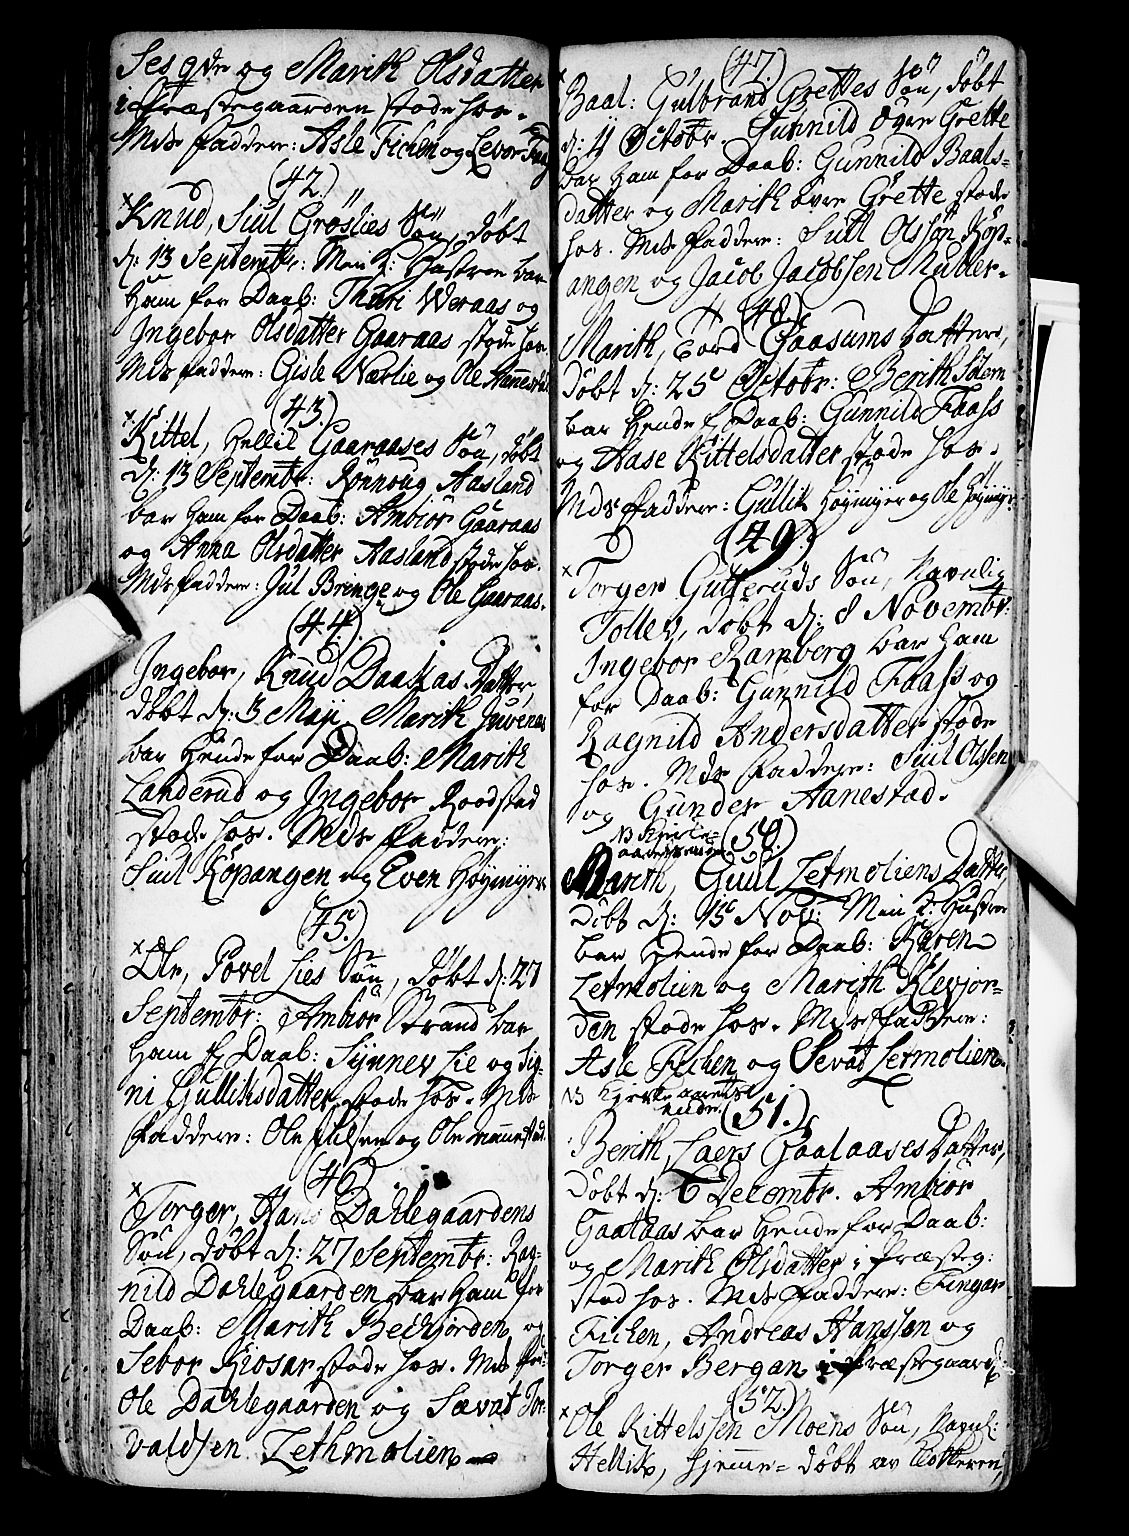 og Marith Olsdatter
i Præstegaarden stode hos.
Mds faddere: Asle Fichen og Levor
(42.)
Knud, Siul Gröslies Sön, döbt
d: 13 Septembr: Min K: Hustroe bar
Ham for Daab: Thuri Weraas og
Ingebor Olsdatter Gaaraas stode hos.
Mds faddere: Gisle Nærlie og Ole
(43.)
Kittel, Hellik Gaaraases Sön, döbt
d: 13 Septembr: Rönnoug Aasland
bar Ham for Daab: Ambior Gaaraas
og Anna Olsdatter Aasland stode hos.
Mds faddere: Jul Bringe og Ole Gaaraas.
(44.)
Ingebor, Knud Daaskas Datter,
döbt d: 3 Maji Marith Juvenes
bar Hende for Daab: Marith
Landerud og Ingebor Roodstad
stode hos. Mds faddere:
Siul Köpangen og Even Höymyer
(45.)
Ole, Povel Lies Sön, döbt d: 27
Septembr: Ambior Strand bar
Ham f Daab: Synnev Lie og Sig-
ni Gulliksdatter stode hos. Mds
faddere: Ole Nilsen og Ole
(46)
Torger, Hans Dahlegaardens
Sön, döbt d: 27 Septembr: Rag-
nild Dahlegaarden bar Ham for
Daab: Marith Beckjorden og
Sebor Kiosar stode hos. Mds
Ole Dahlegaarden og Sævat Tor-
valdsen Lethmolien
(47.)
Baal: Gulbrand Grettes Sön, döbt
d: 11 Octobr. Gunnild övre Grette
bar Ham for Daab: Gunnild Baals-
datter og Marith övre Grette stode
hos. Mds faddere: Siul Olssön Köp-
angen og Jacob Jacobsen Muller.
(48.)
Marith, Tord Gaasums Datter,
döbt d: 25 Octobr: Berith
bar Hende f Daab: Gunnild Faass
og Aase Kittelsdatter stode hos.
Mds faddere: Gullik Höymyer og Ole Höymyr.
(49.)
Torger Gulleruds Sön, Navnlig
Tollev, döbt d: 8 Novembr:
Ingebor Ramberg bar Ham
for Daab: Gunnild Faass og
Ragnild Andersdatter stode
hos. Mds faddere: Siul Olssen
og Gunder Aanestad.
NB
(50.)
Marith, Guul Letmoliens Datter,
döbt d: 15 Nov: Min K: Hustroe
bar Hende for Daab: Karen
Letmolien og Marith Klevjor-
den stode hos. Mds faddere:
Asle Fichen og Sevat Letmolien.
NB Kjerke aarets
ende.
(51.)
Berith, Laers Gaalaases Datter,
döbt d: 6 Decembr. Ambior
Gaalaas bar Hende for Daab:
og Marith Olsdatter i Præsteg:
stod hos. Mds faddere: Fingar
Fichen, Andreas Hanssen og
Torger Bergan i Præstegaard:
(52.)
Ole Kittelssen Moens Sön, Navnl:
Hellik, hjemme-döbt av Klokkeren,